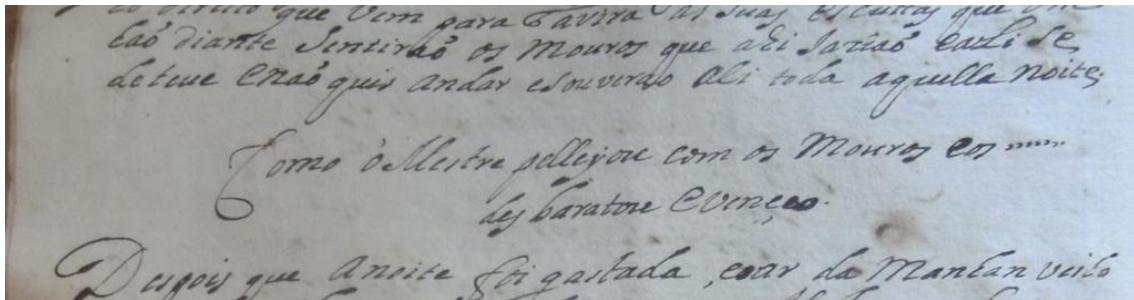 direito que vem para Tavira as suas escuitas que vi
taõ diante sentiraõ os Mouros que ahi jaziaõ eahi se
deteue enaõ quis andar esouveraõ ali toda aquella noite,
Como o Mestre pellejou com os Mouros eos
des baratou evenceo.
Despois que anoite foi gastada, ear da Manhan veilo